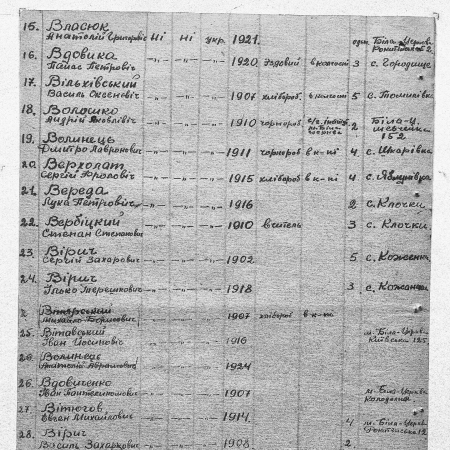 15. Власюк
Анатолій Григорович Ні Ні укр. 1921. один. Біла-Церква
16. Вдовика
Панас Петровіч -„- -„- -„- 1920 їздовий в колгоспі 3 с. Городище
17. Вільхівський
Василь Оксенович -„- -„- -„- 1907 хлібороб в колгоспі 5 с. Томилівка
18. Волошко
Андрій Яковлівіч -„- -„- -„- 1910 чорнороб 2 Біла-Ц.
шевченка
152
19. Волинець
Дмитро Лавронович -„- -„- -„- 1911 чорнороб в к-пі 4 с. Шкарівка
20. Верхолат
Сергій Фролович -„- -„- -„- 1915 хлібороб в к-пі 4 с. Яблунівка
21. Вереда
Лука Петровіч -„- -„- -„- 1916 2 с. Клочки
22. Вербіцкий
Степан Степанович -„- -„- -„- 1910 вчитель 3 с. Клочки
23. Віріч
Сергій Захарович -„- -„- -„- 1902 5 с. Кожанка
24. Віріч
Ілько Терешкович -„- -„- -„- 1918 3 с. Кожанка
Михайло Борисович -„- -„- -„- 1907 хлібороб в к-пі
25. Вітавський
Іван Йосипович -„- -„- -„- 1916 м. Біла-Церква
Київська 125
Волинець
Анатолій Абрамович -„- -„- -„- 1924
26. Вдовиченко
Іван Пантелимонович -„- -„- -„- 1907 м. Біла-Церква
27. Вітюгов
Євген Михайлович -„- -„- -„- 1914 4 м. Біла-Церква
28. Віріч
Василь Захарович -„- -„- -„- 1908 2